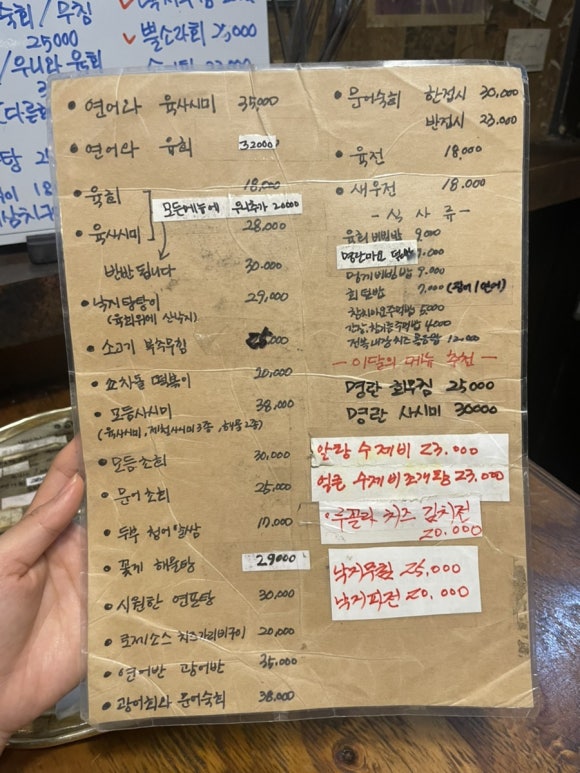 숙회/무침
25000
/우니와 육회
✓ 뿔소라회 25,000
• 연어와 육사시미 35000
• 연어와 육회 32000
• 육회 18,000
모든메뉴에 우니추가 20000
• 육사시미 28,000
반반 됩니다 30.000
• 낙지탕탕이 29,000
(육회위에 산낙지)
• 소고기 부추무침 000
• 쇼치동 떡볶이 20,000
• 모듬사시미 38,000
(육사시미, 제철사시미 3종, 해물 2종)
• 모듬초회 30,000
• 문어초회 25,000
• 두부 청어알쌈 17,000
• 꽃게 해물탕 29000
• 시원한 연포탕 30,000
• 로제소스 치즈가리비구이 20,000
• 연어반 광어반 35,000
• 광어회와 문어숙회 38,000
• 문어숙회 한접시 30,000
반접시 23.000
• 육전 18,000
• 새우전 18.000
- 식 사 류 -
육회비빔밥 9.000
명란마요 덮밥 9.000
멍게비빔밥 9.000
회덮밥 9.000 (광어/연어)
참치마요주먹밥 5,000
간장, 참기름주먹밥 4,000
전복내장치즈볶음밥 12.000
- 이달의 메뉴 추천 -
명란 회무침 25000
명란 사시미 30000
알탕 수제비 23.000
얼큰 수제비조개탕 23,000
• 루꼴라 치즈 김치전
20.000
낙지무침 25,000
낙지파전 20.000